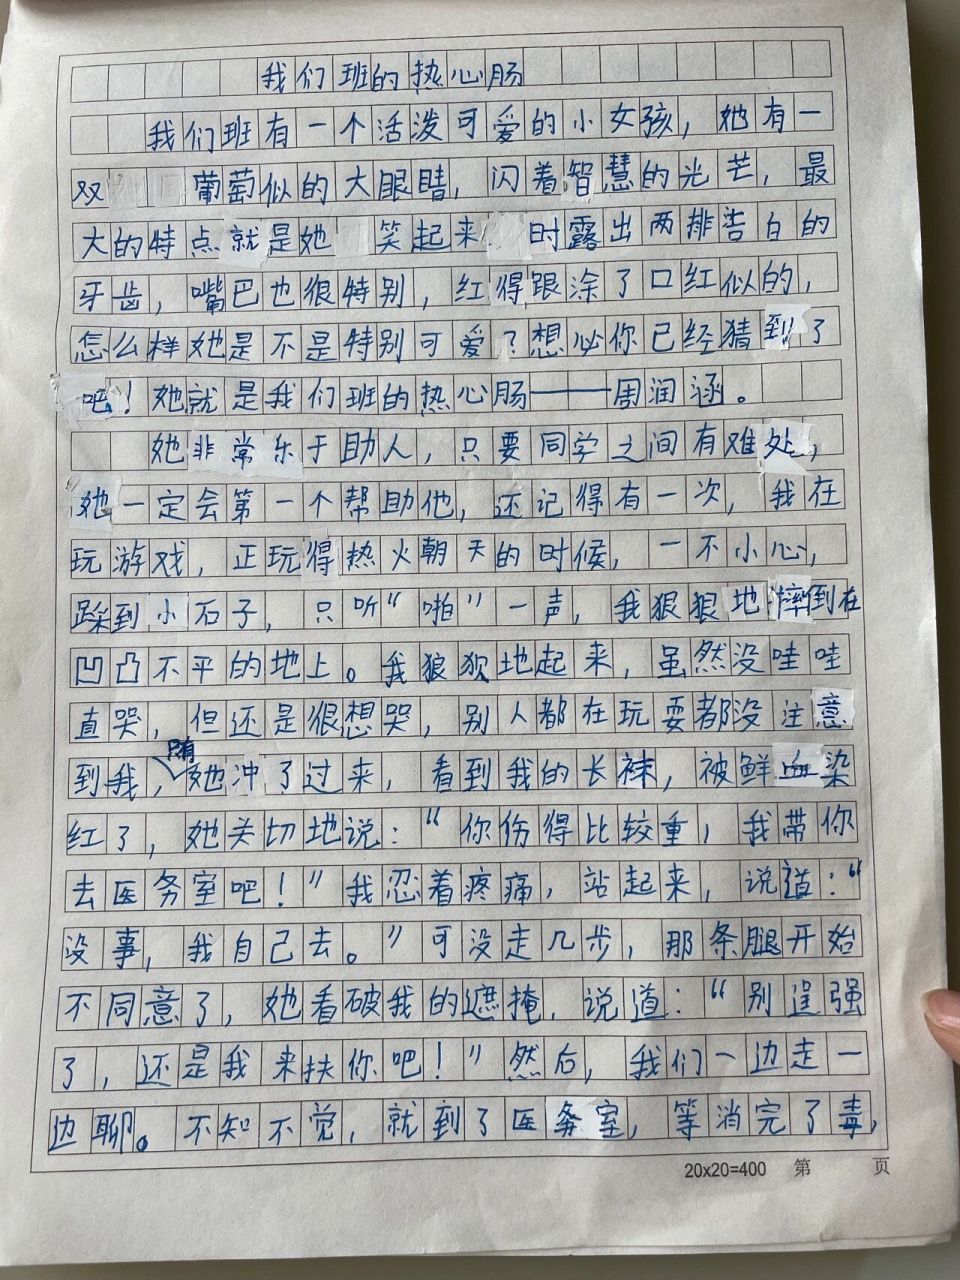 我们班的热心肠
我们班有一个活泼可爱的小女孩，她有一
双葡萄似的大眼睛，闪着智慧的光芒，最
大的特点就是她笑起来时露出两排告白的
牙齿，嘴巴也很特别，红得跟涂了口红似的，
怎么样她是不是特别可爱？想必你已经猜到了
吧！她就是我们班的热心肠——周润涵。
她非常乐于助人，只要同学之间有难处，
她一定会第一个帮助他，还记得有一次，我在
玩游戏，正玩得热火朝天的时候，一不小心，
踩到小石子，只听“啪”一声，我狠狠地摔倒在
凹凸不平的地上。我狼狈地起来，虽然没哇哇
直哭，但还是很想哭，别人都在玩耍都没注意
到我，只有她冲了过来，看到我的长袜，被鲜血染
红了，她关切地说：“你伤得比较重，我带你
去医务室吧！”我忍着疼痛，站起来，说道：“
没事，我自己去。”可没走几步，那条腿开始
不同意了，她看破我的遮掩，说道：“别逞强
了，还是我来扶你吧！”然后，我们一边走一
边聊。不知不觉，就到了医务室，等消完了毒，
20x20=400 第 页